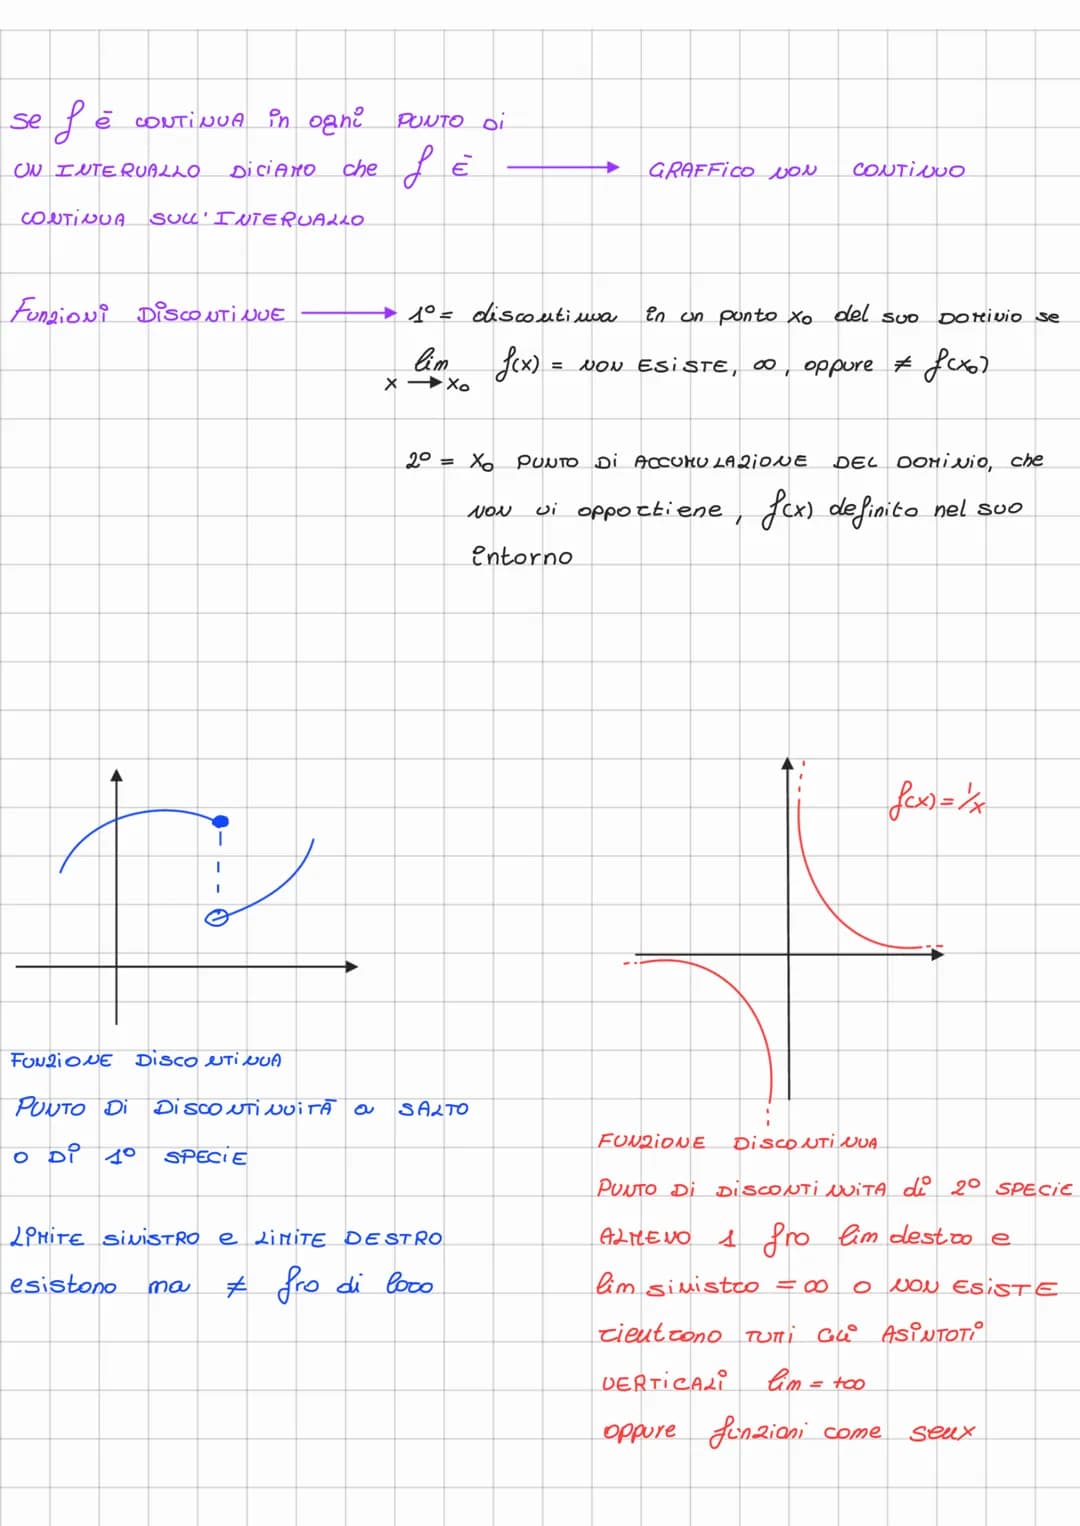 se f è CONTINUA in ogni PUNTO Di
UN INTERVALLO DiCiAMO che f È → GRAFFiCO NON CONTiNUO
CONTINUA SULL'INTERVALLO
Funzioni DiSCONTiNUE → 1° = discontinua in un punto x₀ del suo DOMiNiO se
lim f(x) = NON ESiSTE, ∞, oppure ≠ f(x₀)
x → x₀
2° = X₀ PUNTO Di ACCUMULAZiONE DEL DOMiNiO, che
NON vi appartiene, f(x) definita nel suo
intorno
f(x) = 1/x
FUNZiONE DiSCONTiNUA
PUNTO Di DiSCONTiNUiTÀ a SALTO
O Di 1° SPECiE
LiMiTE SiNiSTRO e LiMiTE DESTRO
esistono ma ≠ fra di loro
FUNZiONE DiSCONTiNUA
PUNTO Di DiSCONTiNUiTA di 2° SPECiE
ALMENO 1 fra lim destro e
lim sinistro = ∞ o NON ESiSTE
rientrano TUTTi GLi ASiNTOTi
VERTiCALi lim = +∞
oppure funzioni come senx